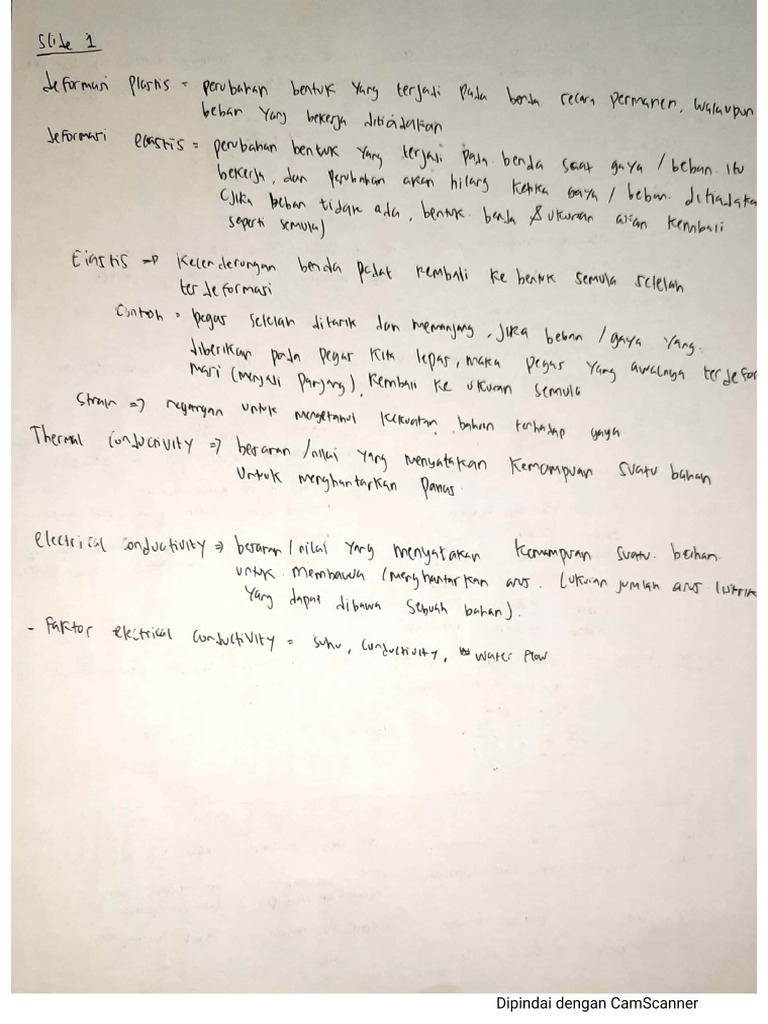 Slide 1
deformasi plastis = perubahan bentuk yang terjadi pada benda secara permanen, walaupun
beban yang bekerja ditiadakan
deformasi elastis = perubahan bentuk yang terjadi pada benda saat gaya / beban itu
bekerja, dan perubahan akan hilang ketika gaya / beban ditiadaka
(Jika beban tidak ada, bentuk benda & ukuran akan kembali
seperti semula)
Elastis => kecenderungan benda padat kembali ke bentuk semula setelah
terdeformasi
Contoh = pegas setelah ditarik dan memanjang, jika beban / gaya yang
diberikan pada pegas kita lepas, maka pegas yang awalnya terdefor
masi (menjadi panjang), kembali ke ukuran semula
Strain => regangan untuk mengetahui kekuatan bahan terhadap gaya
Thermal conductivity => besaran / nilai yang menyatakan kemampuan suatu bahan
untuk menghantarkan panas.
electrical conductivity => besaran / nilai yang menyatakan kemampuan suatu bahan
untuk membawa / menghantarkan arus. (ukuran jumlah arus listrik
yang dapat dibawa sebuah bahan).
- Faktor electrical conductivity = suhu, conductivity, water flow
Dipindai dengan CamScanner